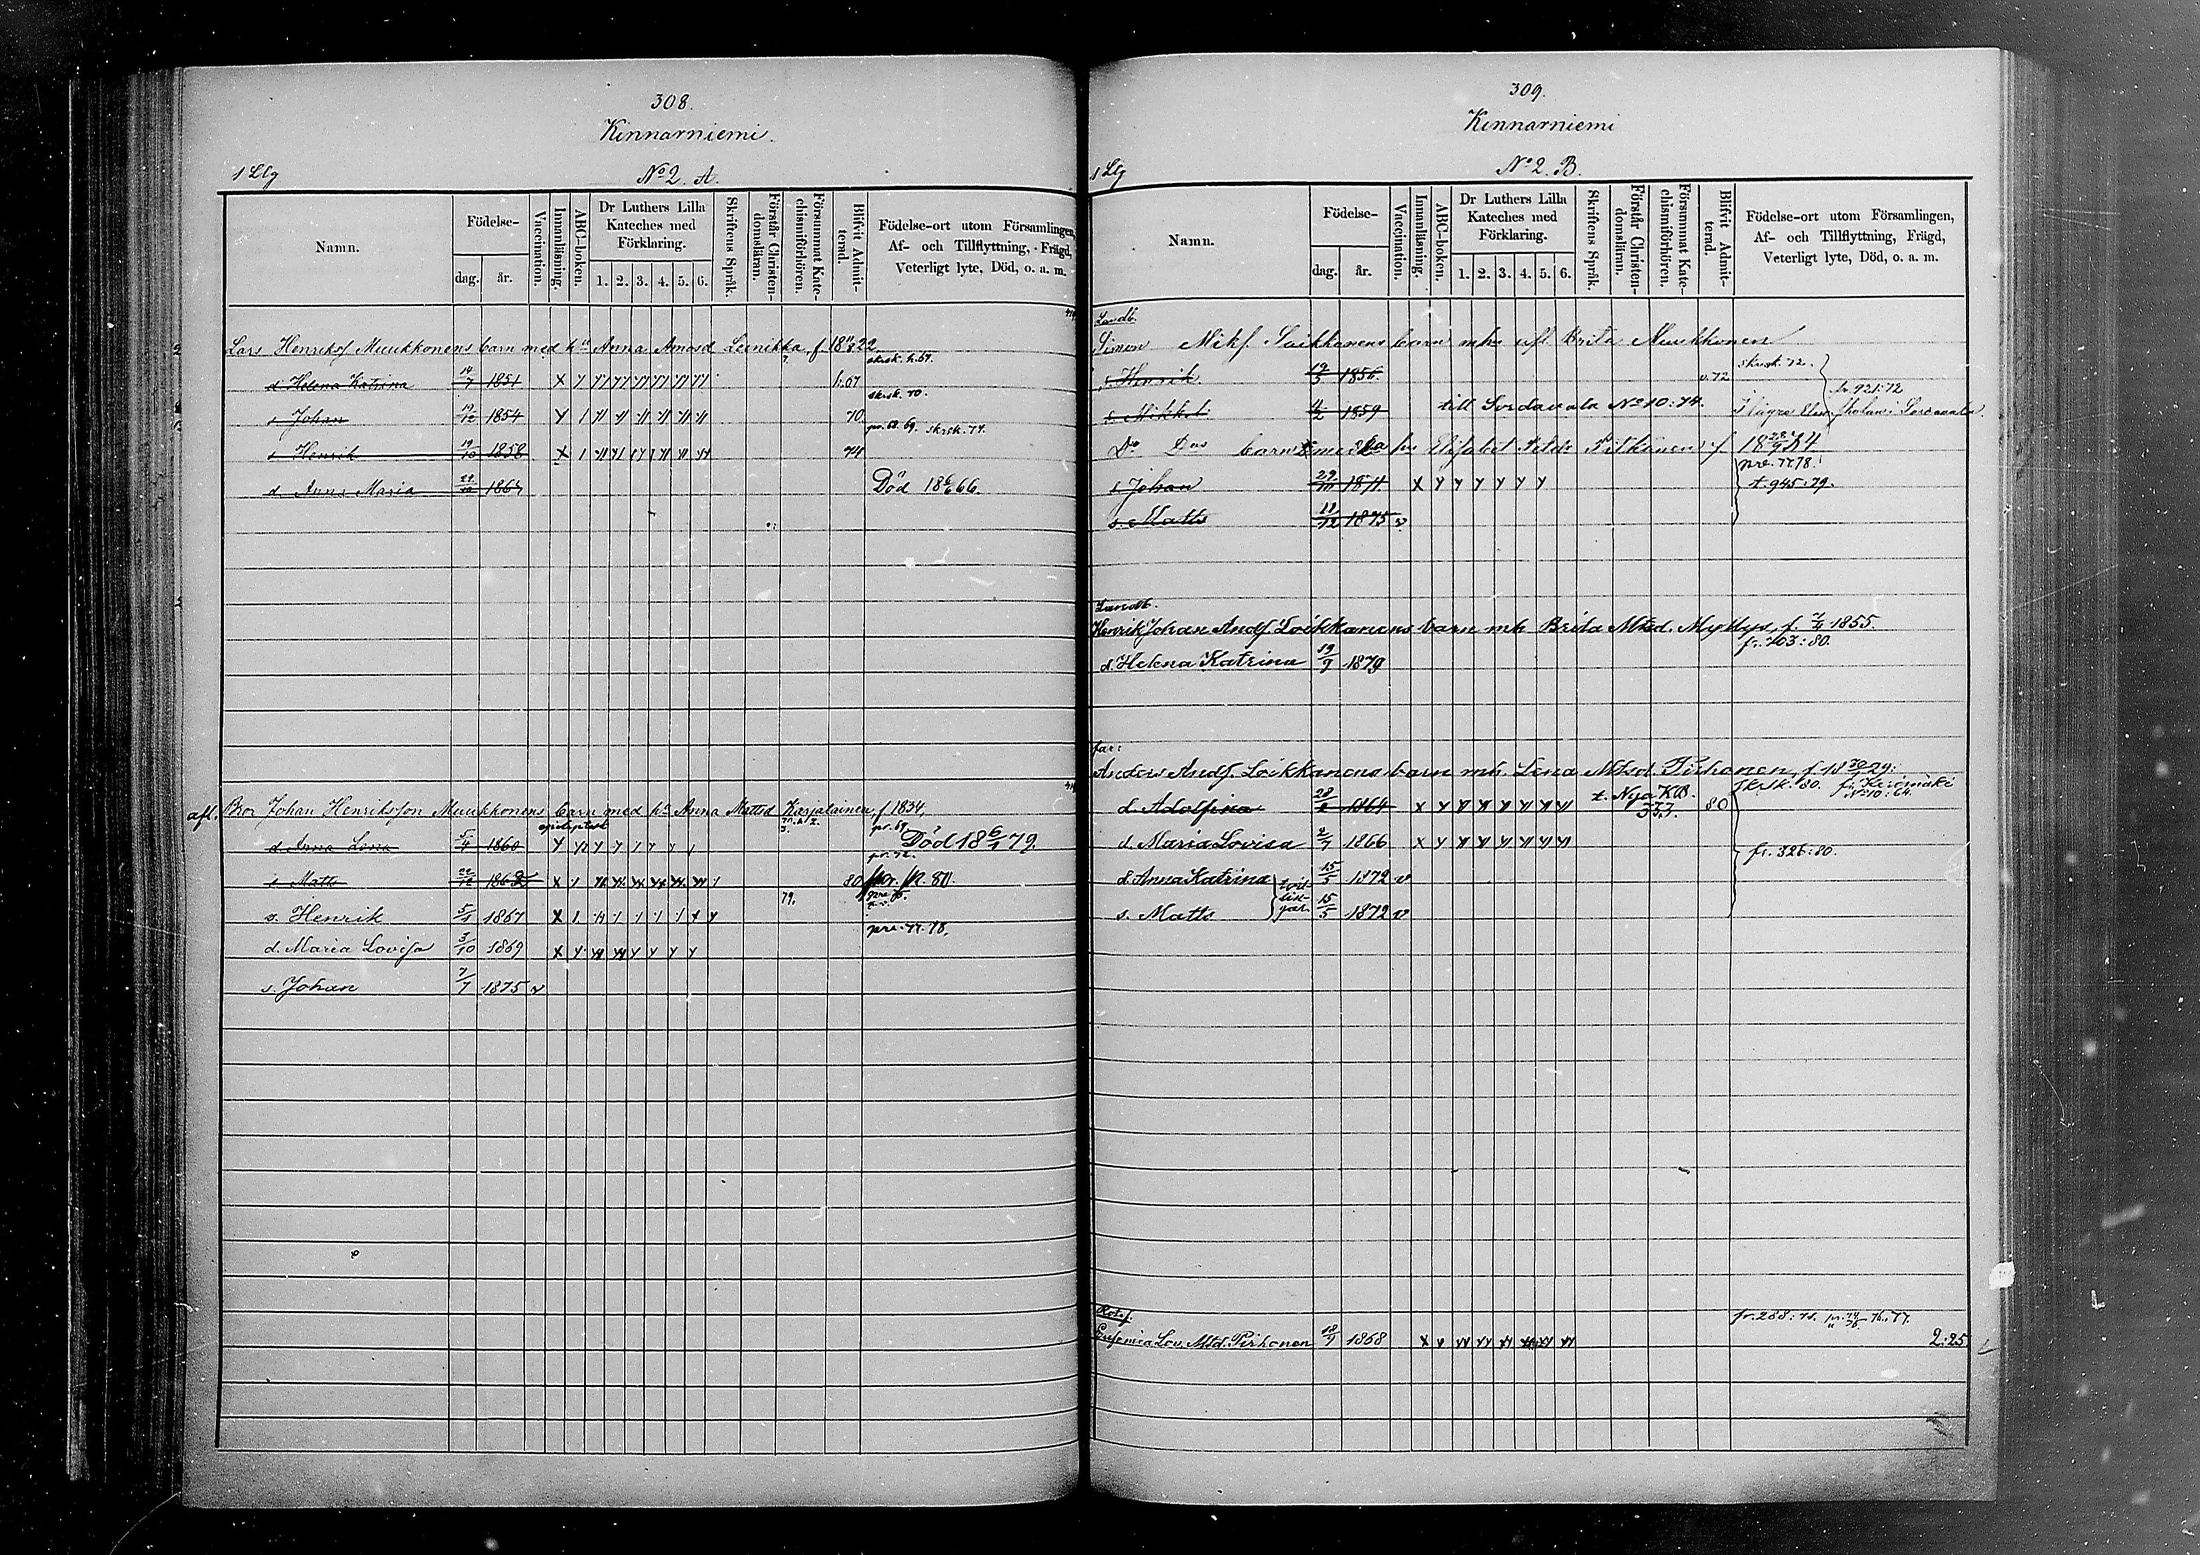 308.
Kinnarniemi.
1 Llg
No 2. A.
Namn.
Födelse-
dag. år.
Vaccination.
Innanläsning.
ABC-boken.
Dr Luthers Lilla Kateches med Förklaring.
1. 2. 3. 4. 5. 6.
Skriftens Språk.
Förstår Christendomsläran.
Försummat Katechismiförhören.
Blifvit Admitterad.
Födelse-ort utom Församlingen,
Af- och Tillflyttning, Frägd,
Veterligt lyte, Död, o. a. m.
Lars Henriksf Muukkonens barn med hu Anna Amosd Leinikka f. 18 22
skrsk. h. 67.
d Helena Katrina 14/7 1851 h. 67
skrsk. 70.
s Johan 19/12 1854 70.
pr. 68. 69. skrsk. 74.
s Henrik 19/10 1858 74
d Anna Maria 1864 Död 18 6/6 66.
afl. Bror Johan Henriksson Muukkonens barn med hu Anna Mattsd Karjalainen f 1834,
epileptisk
d Anna Lena 5/4 1860 Död 18 6/1 79.
s Matts 22/12 1862 80
79.
s. Henrik 5/1 1867
pre. 77. 78.
d. Maria Lovisa 3/10 1869
s. Johan 7/7 1875 v
309.
Kinnarniemi
1 Llg
No 2. B.
Namn.
Födelse-
dag. år.
Vaccination.
Innanläsning.
ABC-boken.
Dr Luthers Lilla Kateches med Förklaring.
1. 2. 3. 4. 5. 6.
Skriftens Språk.
Förstår Christendomsläran.
Försummat Katechismiförhören.
Blifvit Admitterad.
Födelse-ort utom Församlingen,
Af- och Tillflyttning, Frägd,
Veterligt lyte, Död, o. a. m.
Landb.
Simon Mikf. Loikkanens barn mhu afl Brita Muukkonen
skrsk. 72.
s Henrik 19/5 1856. v. 72
s. Mikkel 1859 till Sordavala No 10: 74.
Do Dos barn med 2dra hu Elisabet Pitkänen f 18 28/9 54
pre. 77. 78.
s Johan 29/11 1871 t. 945. 79.
s. Matts 1875 v
Landb.
Henrik Johan Andf. Loikkanens barn mh Brita Mtsd. Myllys f. 1855.
fr. 703: 80.
d. Helena Katrina 19/9 1879
far:
Anders Andf. Loikkanens barn mh. Lena Mtsd. Pirhonen f. 18 29:
skrsk. 80. fr. Kerimäki No 10: 64.
d. Adolfina 28/2 1864 t. Nya KB. 337. 80
d. Maria Lovisa 2/7 1866
fr. 326: 80.
d. Anna Katrina 15/5 1872 v
s. Matts 15/5 1872 v
Rotef.
fr. 288: 71.
Eufemia Lov. Mtsd. Pirhonen 18/9 1868 2: 25